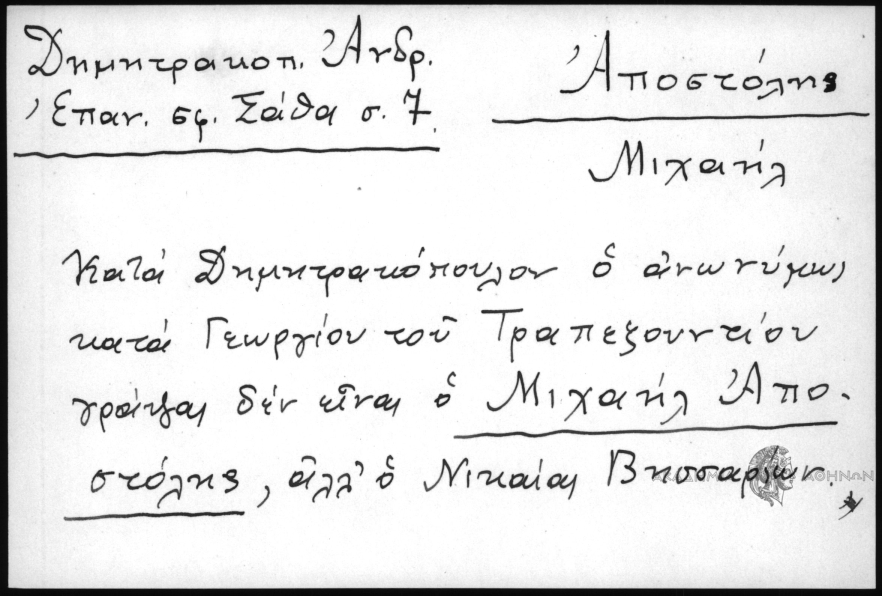 Δημητρακοπ. Ἀνδρ.
Ἐπαν. σφ. Σάθα σ. 7.
Ἀποστόλης
Μιχαήλ
Κατά Δημητρακόπουλον ὁ ἀνωνύμως
κατά Γεωργίου τοῦ Τραπεζουντίου
γράψας δέν εἶναι ὁ Μιχαήλ Ἀπο-
στόλης, ἀλλ' ὁ Νικαίας Βησσαρίων.
ΑΚΑΔΗΜΙΑ ΑΘΗΝΩΝ